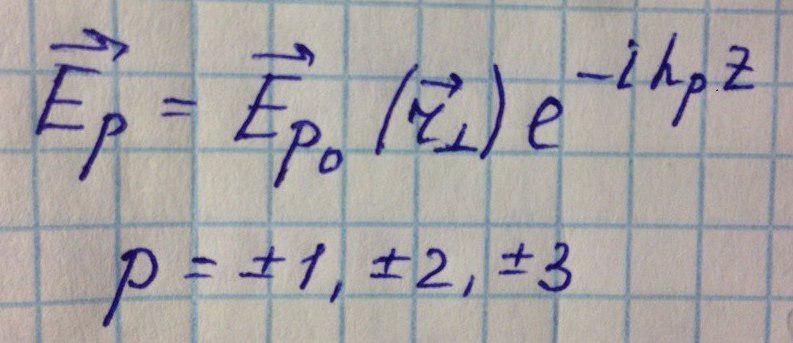 $\vec{E}_p = \vec{E}_{p_0}(\vec{r}_\perp) e^{-i h_p z}$
$p = \pm 1, \pm 2, \pm 3$